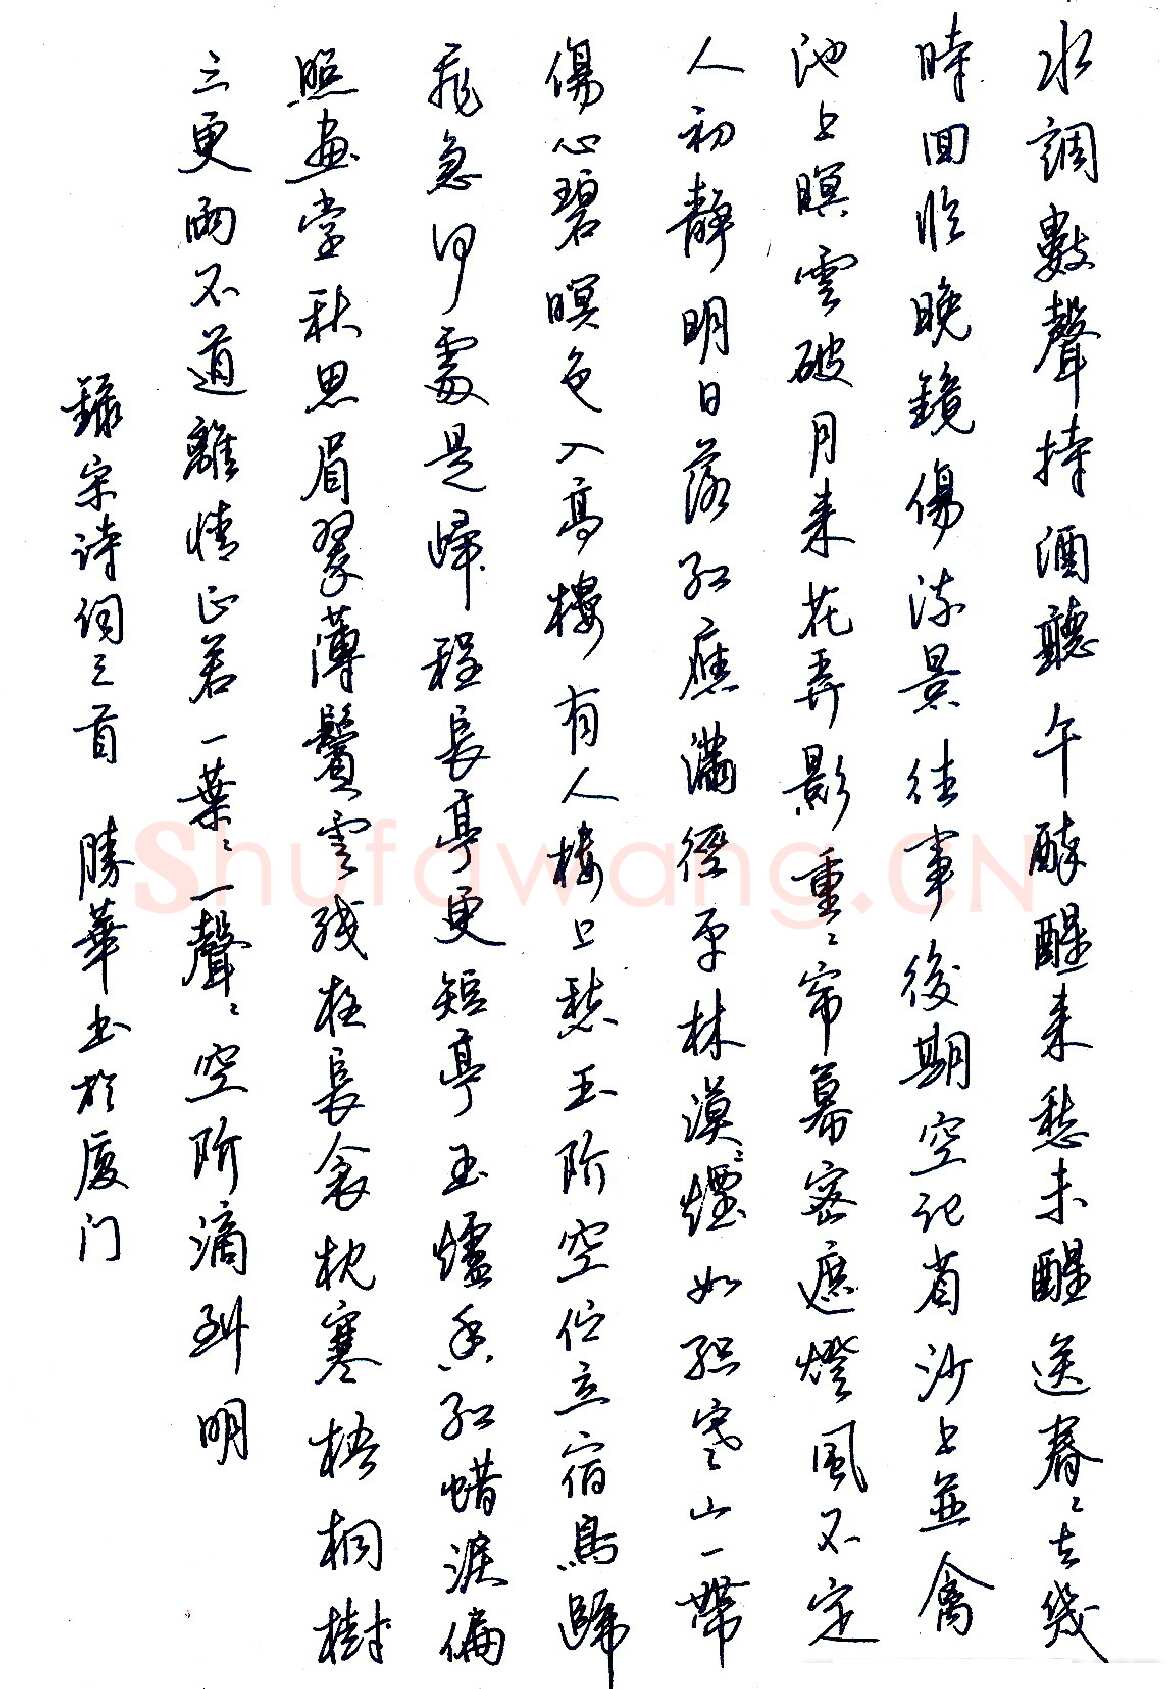 水調數聲持酒聽午醉醒来愁未醒送春〻去幾
時回临晚鏡傷流景往事後期空记省沙上並禽
池上暝雲破月来花弄影重〻帘幕密遮燈風不定
人初靜明日落红應满徑平林漠〻煙如织寒山一帶
傷心碧暝色入高樓有人樓上愁玉阶空伫立宿鳥歸
飛急何處是歸程長亭更短亭玉爐香红蜡淚偏
照畫堂秋思眉翠薄鬢雲残夜長衾枕寒梧桐樹
三更雨不道離情正苦一葉〻一聲〻空阶滴到明
録宋诗词三首 勝華书於廈门
Shufawang.CN